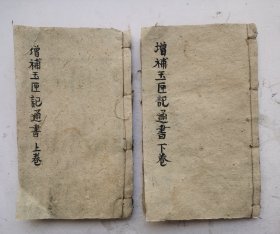 增補玉匣記通書上卷
增補玉匣記通書下卷